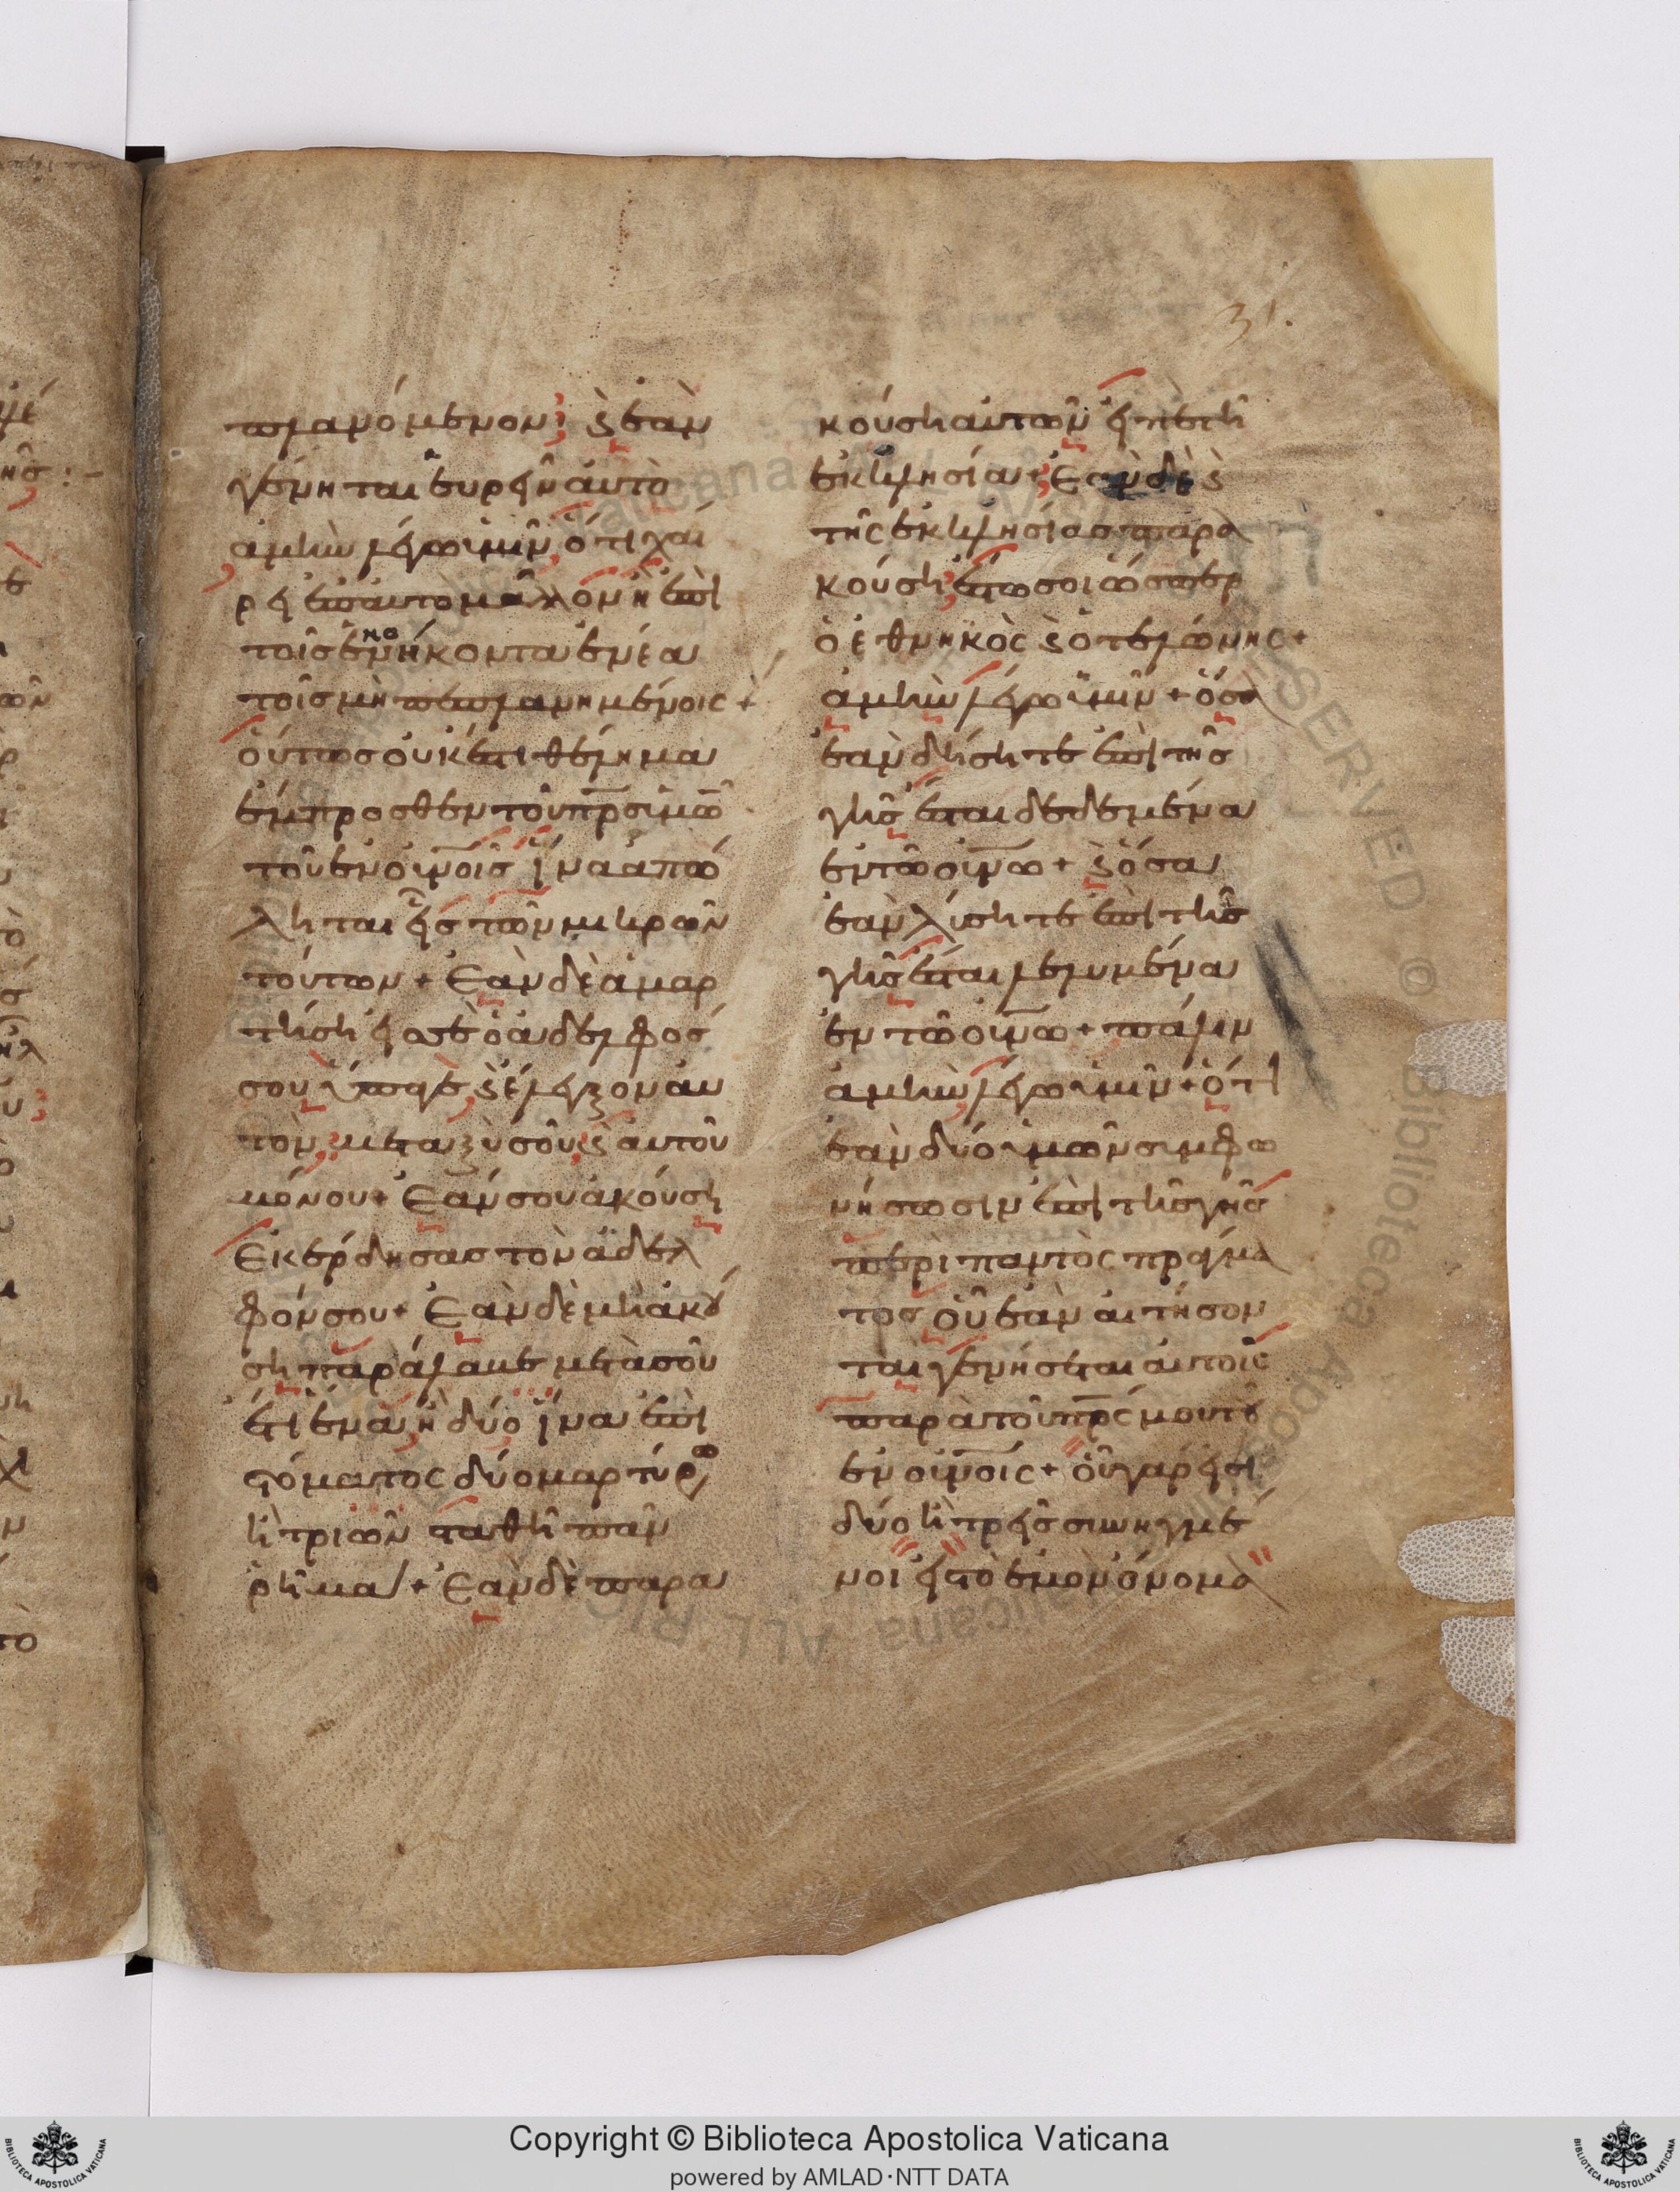 31.
πλανόμενον; ϗ ἐὰν
γένηται εὑρεῖν αὐτὸ
ἀμὴν λέγω ὑμῖν ὅτι χαί
ρει ἐπ αυτὸ μᾶλλον ἢ ἐπὶ
τοῖς ἐννενήκοντα ἐνέα
τοῖς μὴ πεπλανημένοις +
οὕτως οὐκ ἔστι θέλημα
ἔμπροσθεν τοῦ πρ̅σ ὑμῶ̅
τοῦ ἐν οὐνοῖς ἵνα ἀπό
ληται εἷς τῶν μικρῶν
τούτων + Ἐὰν δὲ ἁμαρ
τήση εἰς σὲ ὁ ἀδελφός
σου ὕπαγε ϗ ἔλεγξον αυ
τὸν μεταξὺ σοῦ ϗ αυτοῦ
μόνου + Ἐάν σου ἀκούση
Ἐκέρδησας τὸν ἀδελ
φόν σου + Ἐὰν δὲ μὴ ἀκού
ση παράλαβε μετὰ σοῦ
ἔτι ἕνα ἢ δύο ἵνα ἐπὶ
στόματος δύο μαρτύρω
ἢ τριῶν σταθῆ πᾶν
ῥῆμα + Ἐὰν δὲ παρα
κούση αυτῶν εἰπὲ τῆ
ἐκκλησία + Ἐὰν δὲ ϗ
τῆς ἐκκλησίας παρα
κούση ἔστω σοι ὥσπερ
ὁ ἐθνηκὸς ϗ ὁ τελώνης +
ἀμὴν λέγω ὑμῖν + ὅσα
ἐὰν δήσητε ἐπὶ τῆς
γῆς ἔσται δεδεμένα
ἐν τῶ οὐνω + ϗ ὅσα
ἐὰν λύσητε ἐπὶ τῆς
γῆς ἔσται λελυμένα
ἐν τῶ οὐνω + πάλιν
ἀμὴν λέγω ὑμῖν + ὅτι
ἐὰν δύο ὑμῶν συμφω
νήσωσιν ἐπὶ τῆς γῆς
περὶ παντὸς πράγμα
τος οὗ ἐὰν αἰτήσον
ται γενήσεται αὐτοῖς
παρὰ τοῦ πρ̅ς μου τοῦ
ἐν οὐνοῖς + οὗ γάρ εἰσι
δύο ἢ τρεῖς συνηγμέ
νοι εἰς τὸ ἐμὸν ὄνομα
Copyright © Biblioteca Apostolica Vaticana
powered by AMLAD·NTT DATA